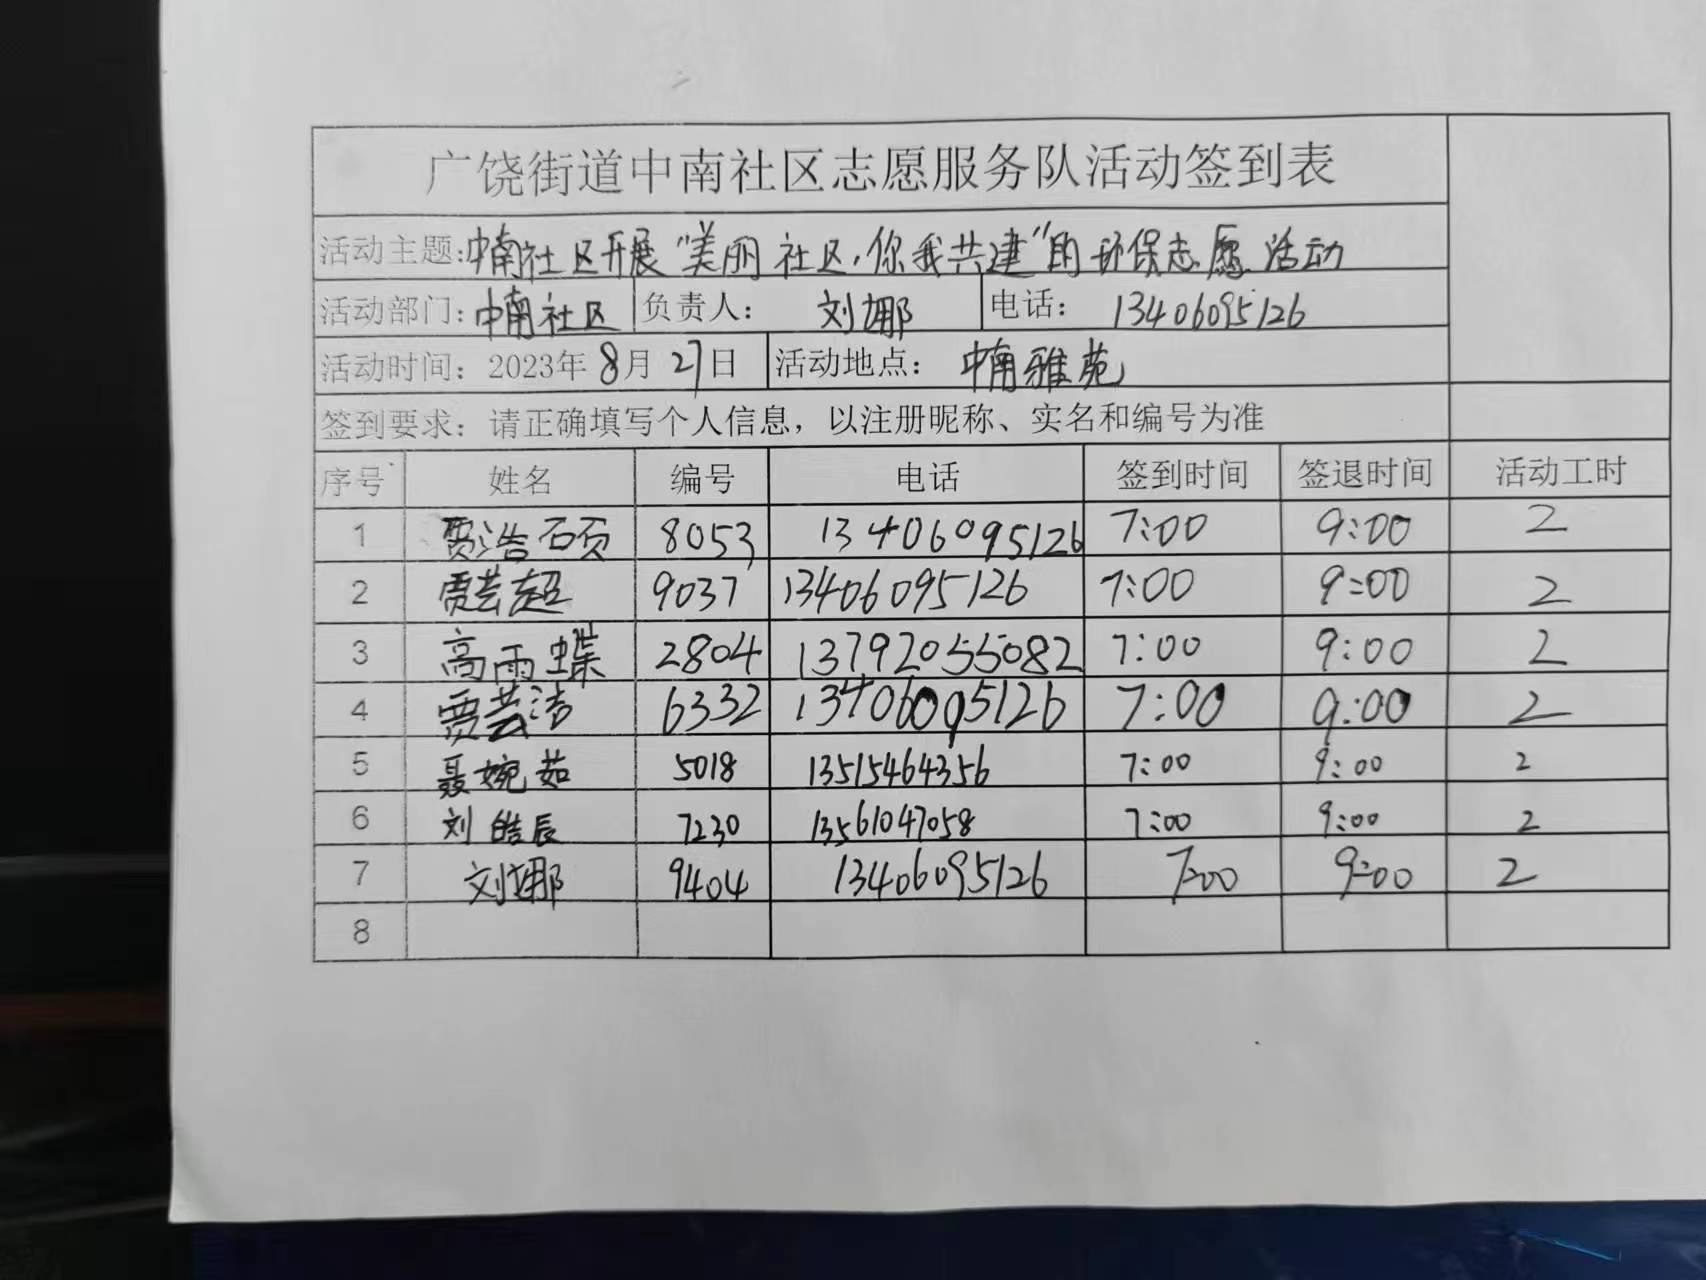 广饶街道中南社区志愿服务队活动签到表
活动主题:中南社区开展“美丽社区,你我共建”的环保志愿活动
活动部门:中南社区 负责人: 刘娜 电话: 13406095126
活动时间: 2023年8月27日 活动地点: 中南雅苑
签到要求: 请正确填写个人信息,以注册昵称、实名和编号为准
序号 姓名 编号 电话 签到时间 签退时间 活动工时
1 贾浩硕 8053 13406095126 7:00 9:00 2
2 贾芸超 9037 13406095126 7:00 9:00 2
3 高雨蝶 2804 13792055082 7:00 9:00 2
4 贾芸洁 6332 13406095126 7:00 9:00 2
5 聂婉茹 5018 13515464356 7:00 9:00 2
6 刘皓辰 7230 13561047058 7:00 9:00 2
7 刘娜 9404 13406095126 7:00 9:00 2
8